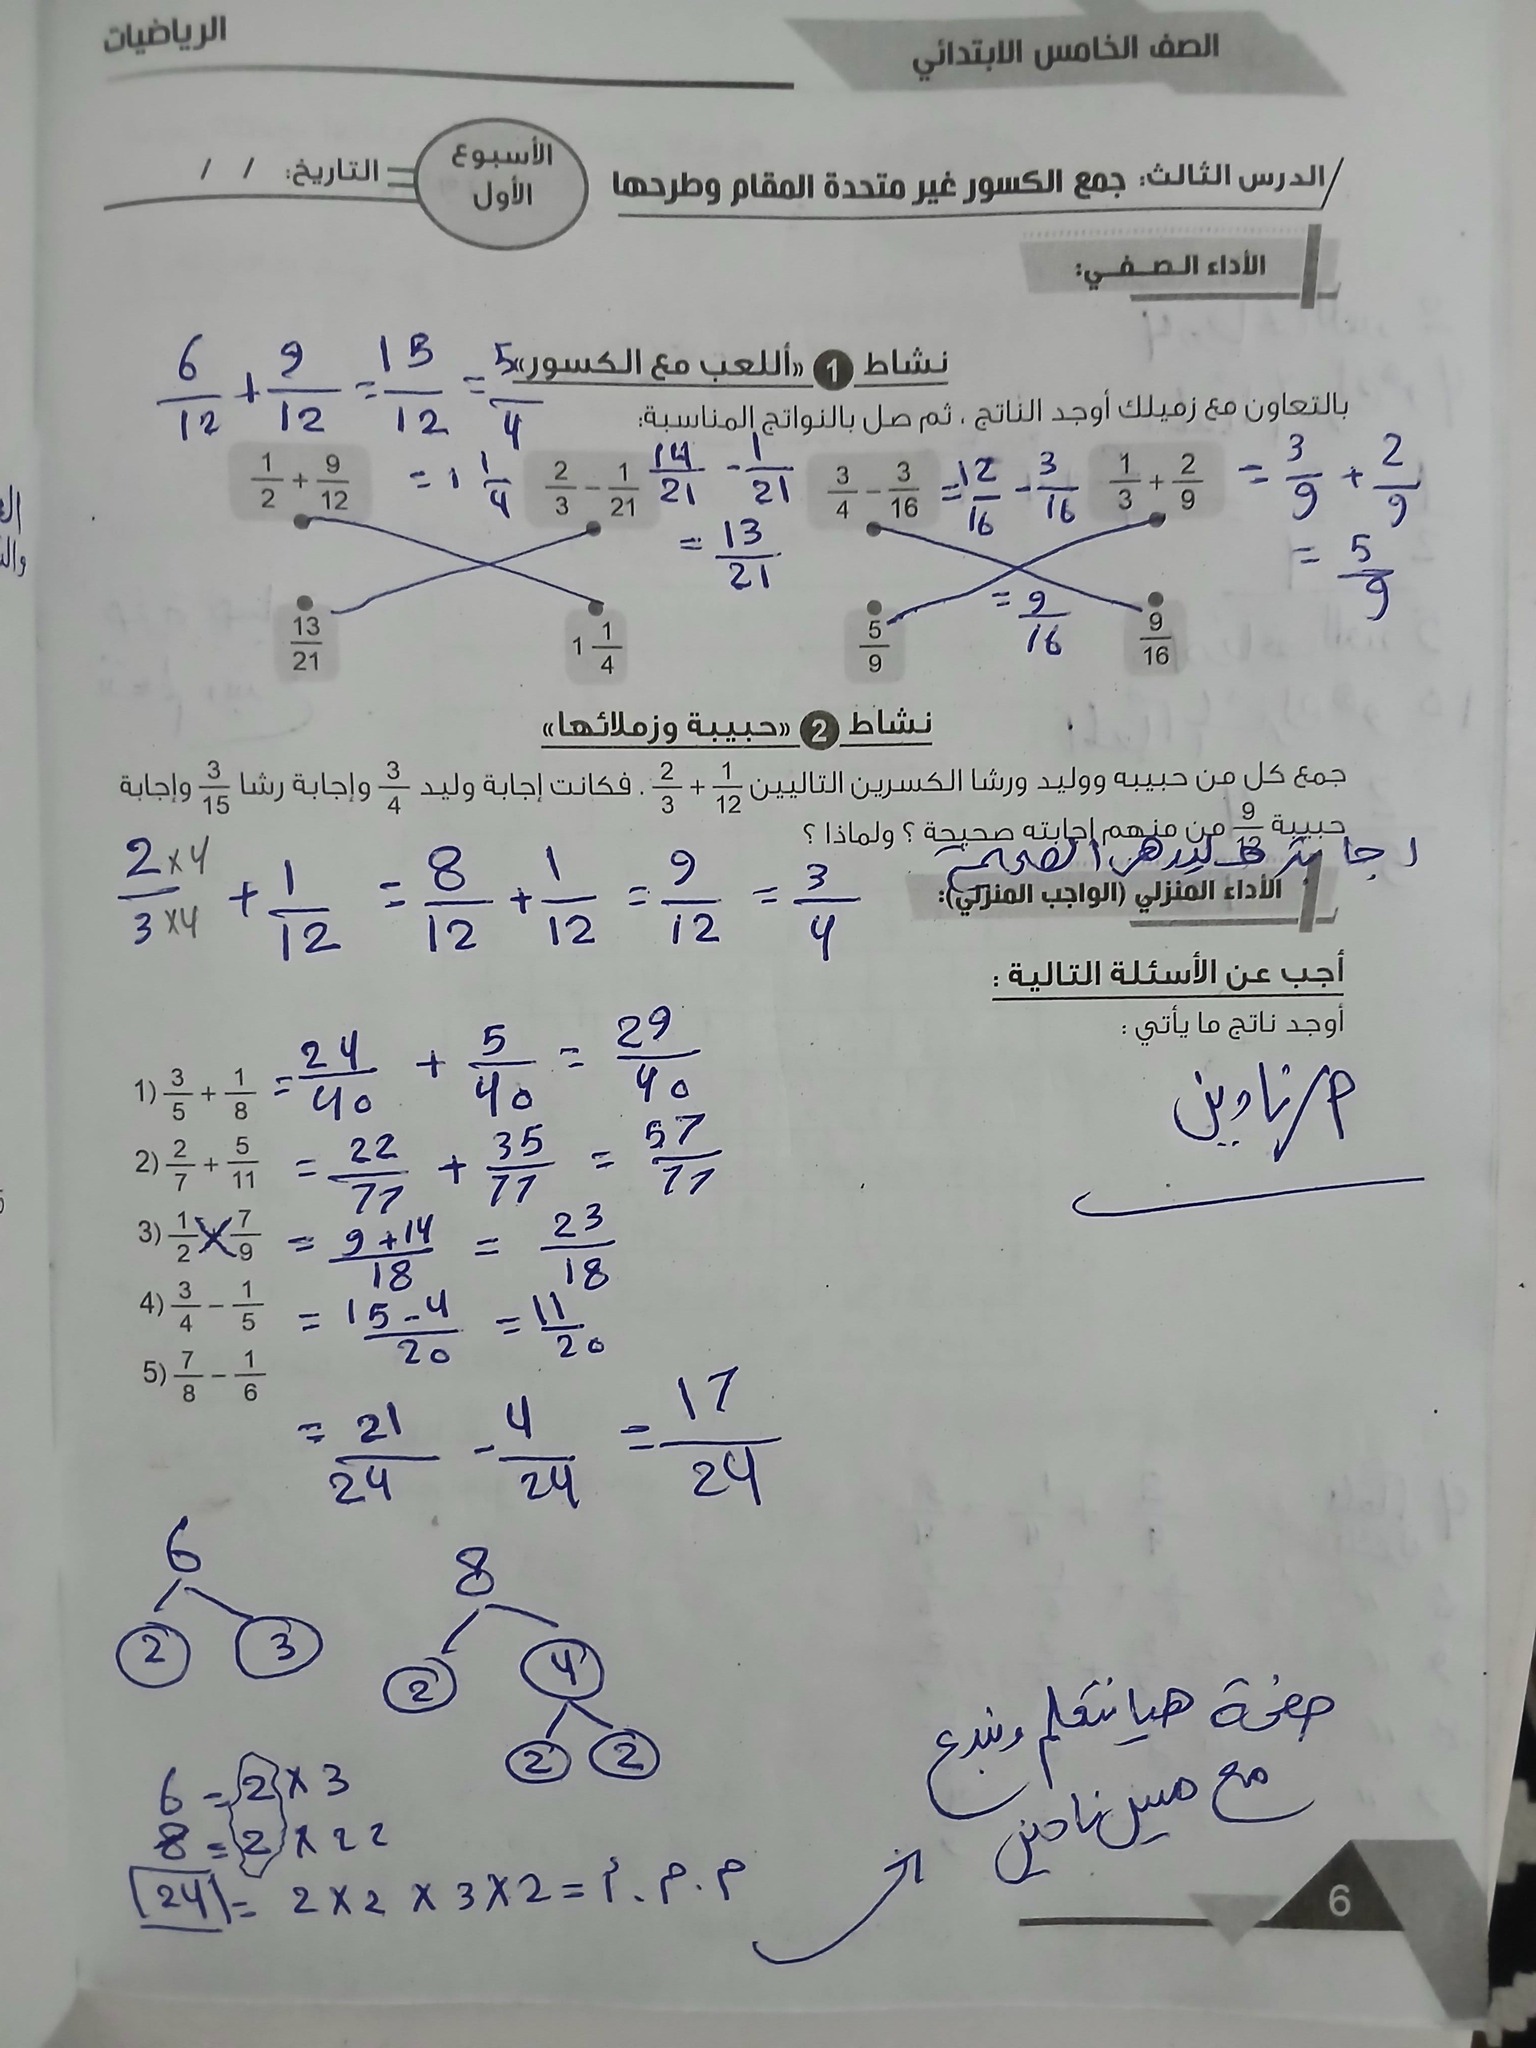 الرياضيات
الصف الخامس الابتدائي
الدرس الثالث: جمع الكسور غير متحدة المقام وطرحها
الأسبوع الأول
التاريخ: / /
الأداء الصفي:
نشاط 1 «أللعب مع الكسور»
6/12 + 9/12 = 15/12 = 5/4
= 1 1/4
بالتعاون مع زميلك أوجد الناتج ، ثم صل بالنواتج المناسبة:
1/2 + 9/12
2/3 - 1/21
14/21 - 1/21
= 13/21
3/4 - 3/16
= 12/16 - 3/16
= 9/16
1/3 + 2/9
= 3/9 + 2/9
= 5/9
13/21
1 1/4
5/9
9/16
نشاط 2 «حبيبة وزملائها»
جمع كل من حبيبه ووليد ورشا الكسرين التاليين 1/12 + 2/3 . فكانت إجابة وليد 3/4 وإجابة رشا 3/15 وإجابة
حبيبة 9/12 من منهم إجابته صحيحة ؟ ولماذا ؟
2×4/3×4 + 1/12 = 8/12 + 1/12 = 9/12 = 3/4
الأداء المنزلي (الواجب المنزلي):
أجب عن الأسئلة التالية :
أوجد ناتج ما يأتي :
م/نادين
1) 3/5 + 1/8 = 24/40 + 5/40 = 29/40
2) 2/7 + 5/11 = 22/77 + 35/77 = 57/77
3) 1/2 + 7/9 = 9+14/18 = 23/18
4) 3/4 - 1/5 = 15-4/20 = 11/20
5) 7/8 - 1/6
= 21/24 - 4/24 = 17/24
6
2 3
8
2 4
2 2
6 = 2 × 3
8 = 2 × 2 2
24 = 2 × 2 × 3 × 2 = م.م.أ
صفحة هيا نتعلم ونبدع
مع ميس نادين
6